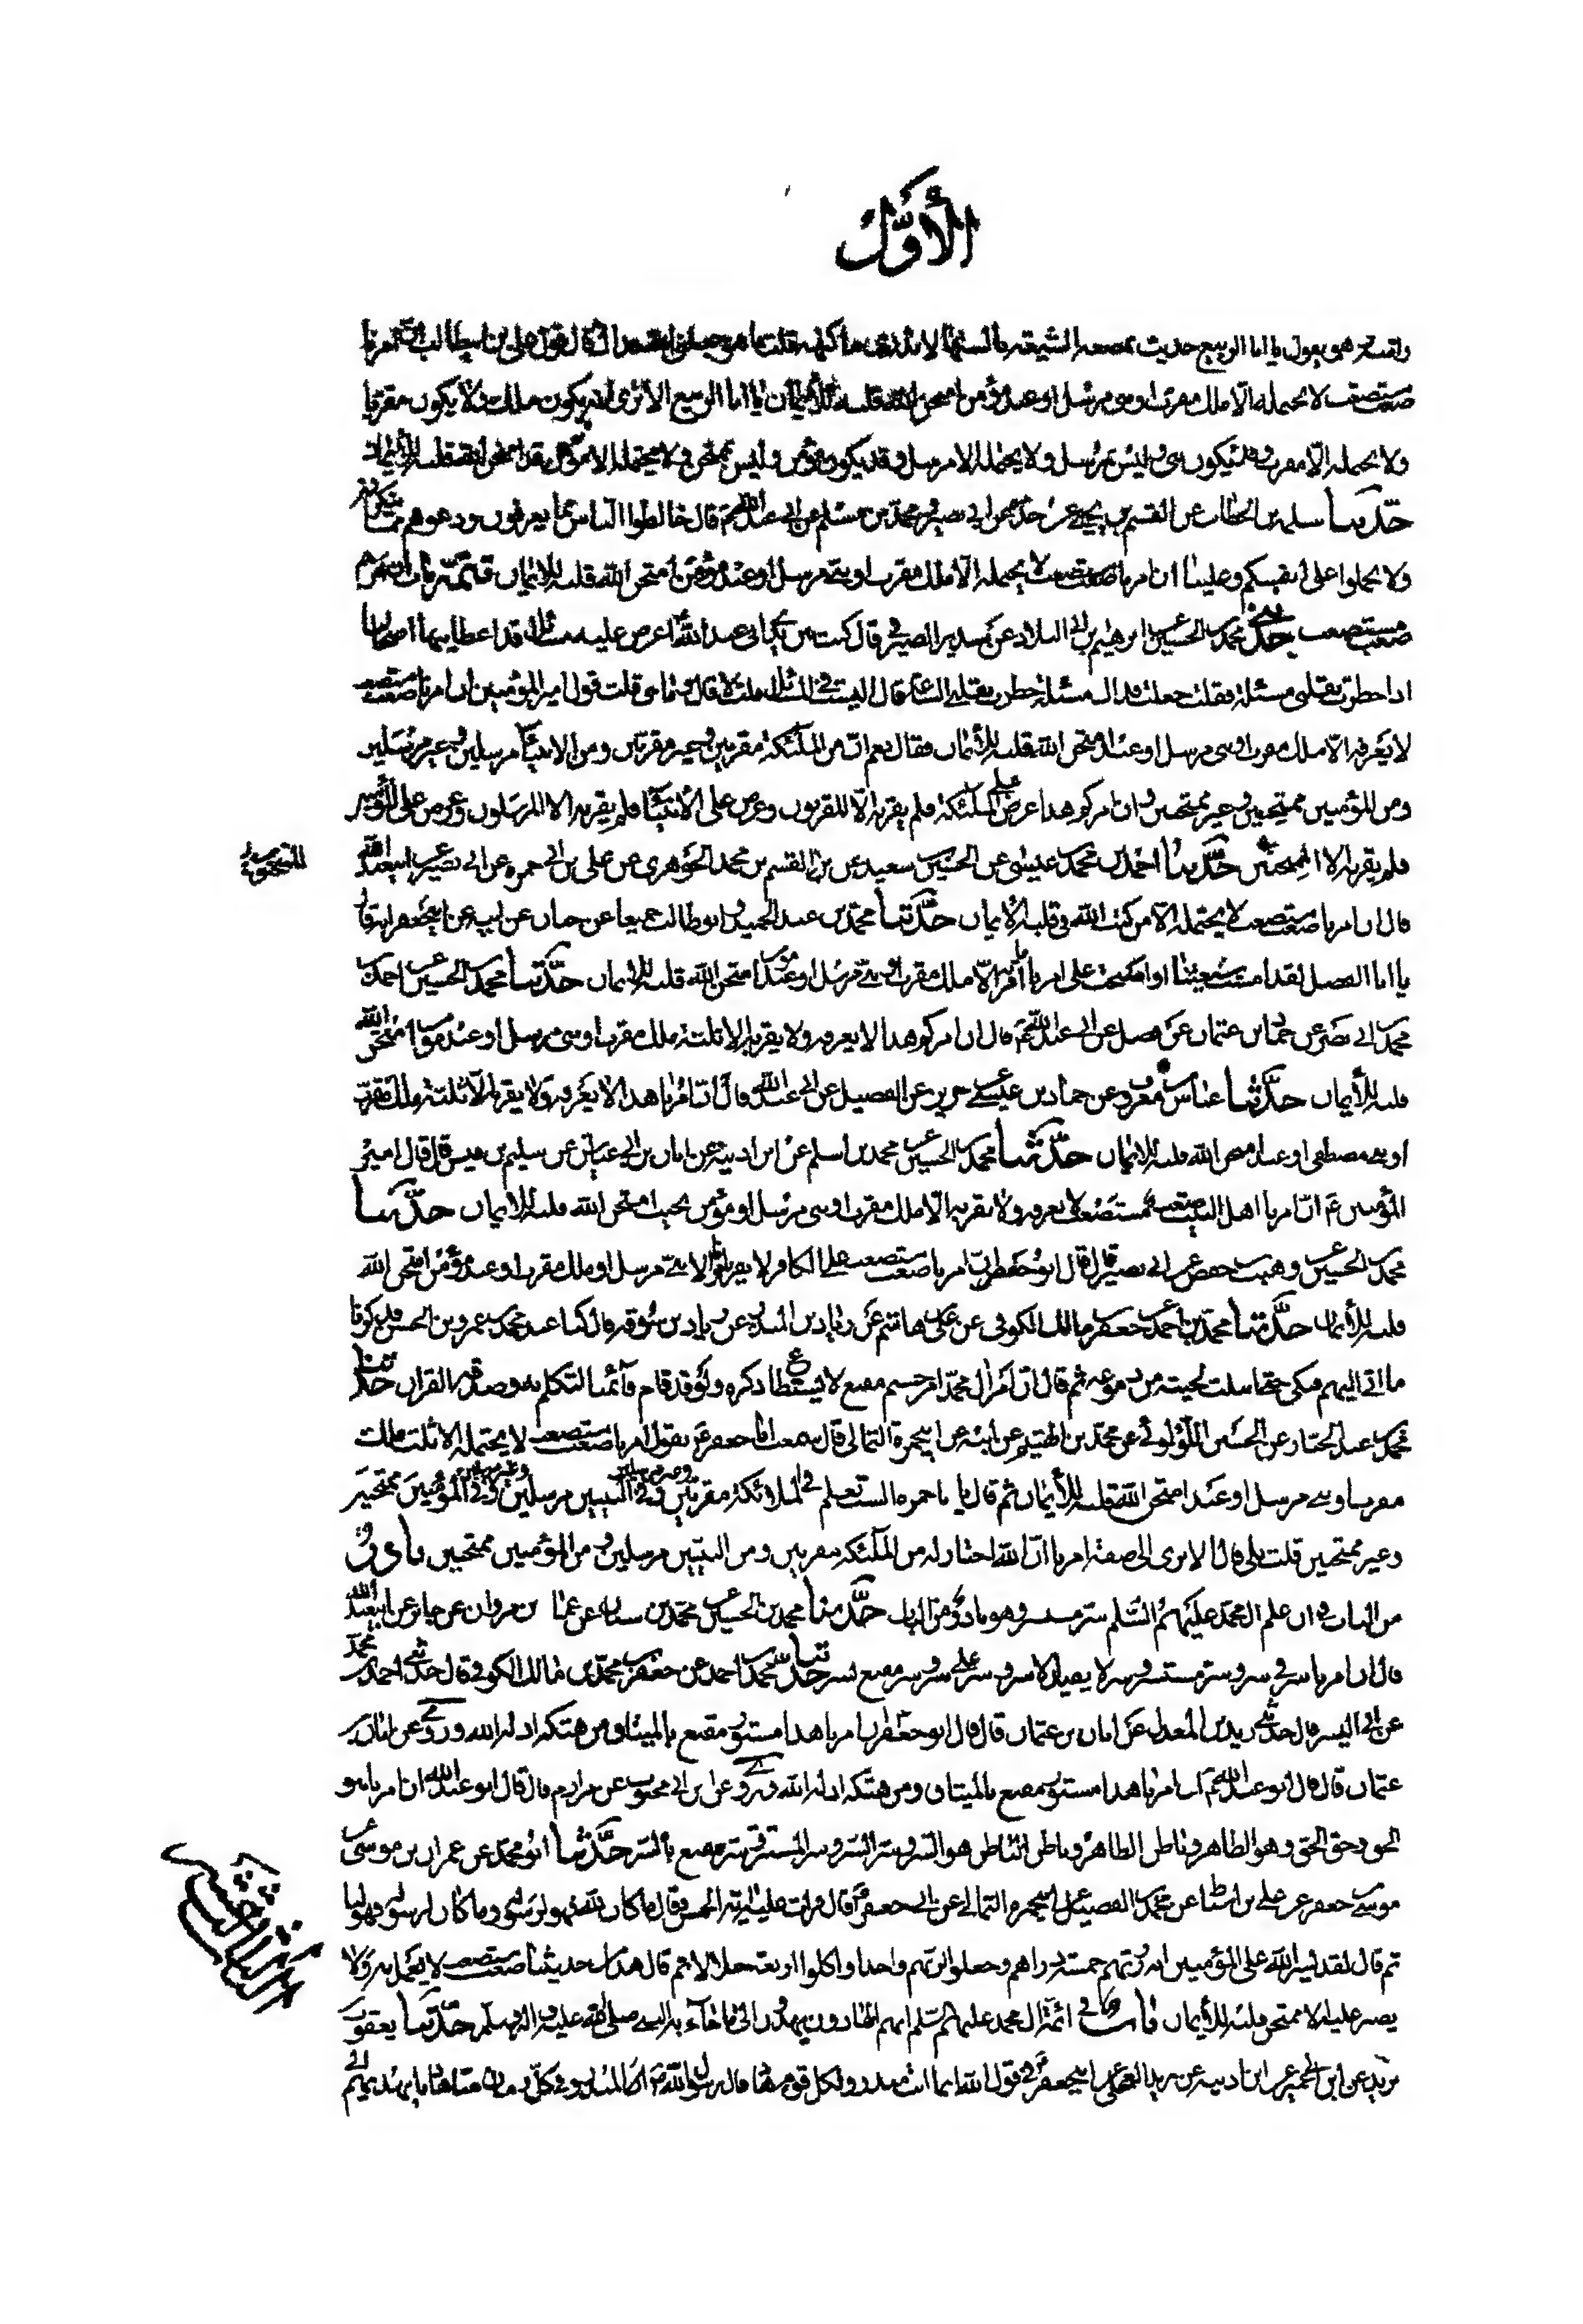 الأوّل
يا ابا الربيع حديث تمضغه الشيعة بالسنتها لا تدرى ما كنهه قلت ما هو جعلنى الله فداك قال قول على بن ابيطالب ان امرنا
صعب مستصعب لا يحتمله الّا ملك مقرب او نبى مرسل او عبد مؤمن امتحن الله قلبه للأيمان يا ابا الربيع الا ترى انه يكون ملك ولا يكون مقربا
ولا يحتمله الّا مقرب وقد يكون نبى وليس بمرسل ولا يحتمله الا مرسل وقد يكون مؤمن وليس بممتحن ولا يحتمله الا مؤمن قد امتحن الله قلبه للأيمان
حدّثنا سلمه بن الخطاب عن القسم بن يحيى عن جدّه عن ابى بصير ومحمد بن مسلم عن ابى عبد الله قال خالطوا الناس مما يعرفون ودعوهم مما ينكرون
ولا تحملوا على انفسكم وعلينا ان امرنا صعب مستصعب لا يحتمله الّا ملك مقرب او نبى مرسل او عبد مؤمن امتحن الله قلبه للايمان
صعب مستصعب حدّثنى محمد بن الحسين عن ابرهيم بن ابى البلاد عن سدير الصيرفى قال كنت بين يدى ابى عبد الله اعرض عليه مسائل قد اعطانيها اصحابنا
اذ خطرت بقلبى مسئلة فقلت جعلت فداك مسئلة خطرت بقلبى الساعة قال اليست فى المسائل قلت لا قال وما هى قلت قول امير المؤمنين ان امرنا صعب مستصعب
لا يعرفه الّا ملك مقرب او نبى مرسل او عبد امتحن الله قلبه للأيمان فقال نعم انّ من الملئكة مقربين وغير مقربين ومن الانبياء مرسلين وغير مرسلين
ومن المؤمنين ممتحنين وغير ممتحنين وان امركم هذا عرض على الملئكة فلم يقربه الّا المقربون وعرض على الانبياء فلم يقربه الا المرسلون وعرض على المؤمنين
فلم يقربه الا الممتحنين حدّثنا احمد بن محمد بن عيسى عن الحسين بن سعيد عن القسم بن محمد الجوهرى عن على بن ابى حمزه عن ابى بصير عن ابيعبد الله
قال ان امرنا صعب مستصعب لا يحتمله الّا من كتب الله فى قلبه الايمان حدّثنا محمّد بن عبد الحميد وابو طالب جميعا عن حنان عن ابيه عن ابيجعفر انه قال
يا ابا الفضل لقد امست شيعتنا او اصبحت على امر ما اقر به الّا ملك مقرب او نبى مرسل او عبد مؤمن امتحن الله قلبه للايمان حدّثنا محمد بن الحسين عن احمد بن
محمد بن ابى نصر عن حماد بن عثمان عن فضيل عن ابى عبد الله قال ان امركم هذا لا يعرفه ولا يقربه الا ثلثة ملك مقرب او نبى مرسل او عبد مؤمن امتحن الله
قلبه للأيمان حدّثنا عباس بن معروف عن حماد بن عيسى عن حريز عن الفضيل عن ابى عبد الله قال انّ امرنا هذا لا يعرفه ولا يقربه الّا ثلثة ملك مقرب
او نبى مصطفى او عبد امتحن الله قلبه للايمان حدّثنا محمد بن الحسين عن محمد بن اسلم عن ابن اذينة عن ابان بن ابى عياش عن سليم بن قيس قال قال امير
المؤمنين انّ امرنا اهل البيت صعب مستصعب لا يعرفه ولا يقربه الّا ملك مقرب او نبى مرسل او مؤمن نجيب امتحن الله قلبه للايمان حدّثنا
محمد بن الحسين عن وهيب بن حفص عن ابى بصير قال قال ابو جعفر ان امرنا صعب مستصعب على الكافر لا يقر بامرنا الا نبى مرسل او ملك مقرب او عبد مؤمن امتحن الله
قلبه للأيمان حدّثنا محمّد بن احمد عن جعفر بن مالك الكوفى عن على بن هاشم عن زياد بن المنذر عن زياد بن سوقه قال كنا عند محمد بن عمرو بن الحسن فذكرنا
ما اتى اليهم فبكى حتى ابتلت لحيته من دموعه ثم قال انّ امر ال محمّد امر جسيم مقنع لا يستطاع ذكره ولو قد قام قائمنا لتكلم به وصدقه القران حدّثنا
محمد بن عبد الجبار عن الحسن بن الحسين اللؤلوئى عن محمّد بن الهيثم عن ابيه عن ابيحمزة الثمالى قال سمعت ابا جعفر يقول امرنا صعب مستصعب لا يحتمله الا ثلث ملك
مقرب او نبى مرسل او عبد امتحن الله قلبه للأيمان ثم قال يا ابا حمزه الست تعلم فى الملائكة مقربين وغير مقربين وفى النبيين مرسلين وغير مرسلين وفى المؤمنين ممتحنين
وغير ممتحنين قلت بلى قال الا ترى الى صفة امرنا انّ الله اختار له من الملئكة مقربين ومن النبيين مرسلين ومن المؤمنين ممتحنين نادر
من الباب فى ان علم ال محمّد عليهم السّلم سرّ مستسر وهو نادر من الباب حدّثنا محمد بن الحسين عن محمّد بن سنان عن عمار بن مروان عن جابر عن ابيعبد الله
قال ان امرنا سرّ فى سرّ وسرّ مستسر وسر لا يفيد الا سر وسر على سر وسر مقنع بسر حدّثنا محمّد بن احمد عن جعفر بن محمّد بن مالك الكوفى قال حدّثنى احمد بن محمّد
عن ابى اليسر قال حدّثنى زيد بن المعدل عن ابان بن عثمان قال قال ابو جعفر ان امرنا هذا مستور مقنع بالميثاق من هتكه اذله الله وروى عن ابان بن
عثمان قال قال ابو عبد الله ان امرنا هذا مستور مقنع بالميثاق ومن هتكه اذله الله وروى عن ابن ابى محبوب عن مرازم قال قال ابو عبد الله ان امرنا هو
الحق وحق الحق وهو الظاهر وباطن الظاهر وباطن الباطن وهو السرّ وسرّ السّر وسر المستسر وسر مقنع بالسّر حدّثنا ابو محمّد عن عمران بن موسى عن
موسى بن جعفر عن على بن اسباط عن محمّد بن الفضيل عن ابيحمزه الثمالى عن ابى جعفر قال قرأت عليه اية الخمس فقال ما كان لله فهو لرسوله وما كان لرسوله فهو لنا
ثم قال لقد يسر الله على المؤمنين انه رزقهم خمسة دراهم وجعلوا لربّهم واحدا واكلوا اربعة حلالا ثم قال هذا من حديثنا صعب مستصعب لا يعمل به ولا
يصبر عليه الا ممتحن قلبه للأيمان باب فى ائمّة ال محمد عليهم السّلم انهم الهادون يهدون الى ما جاء به النبى صلى الله عليه واله وسلّم حدّثنا يعقوب بن
يزيد عن ابن ابى عمير عن ابن اذينه عن بريد العجلى عن ابيجعفر فى قول الله انما انت منذر ولكل قوم هاد قال رسول الله المنذر وفى كلّ زمان منا هاديا يهديهم الى